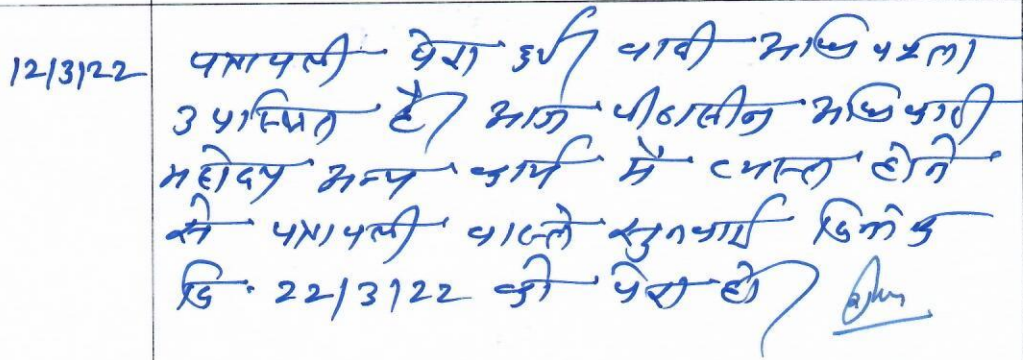 12/3/22 पत्रावली पेश हुई। वादी अधिवक्ता
उपस्थित है। आज पीठासीन अधिकारी
महोदय अन्य कार्य में व्यस्त होने
से पत्रावली वास्ते सुनवाई दिनांक
दि. 22/3/22 को पेश हो।